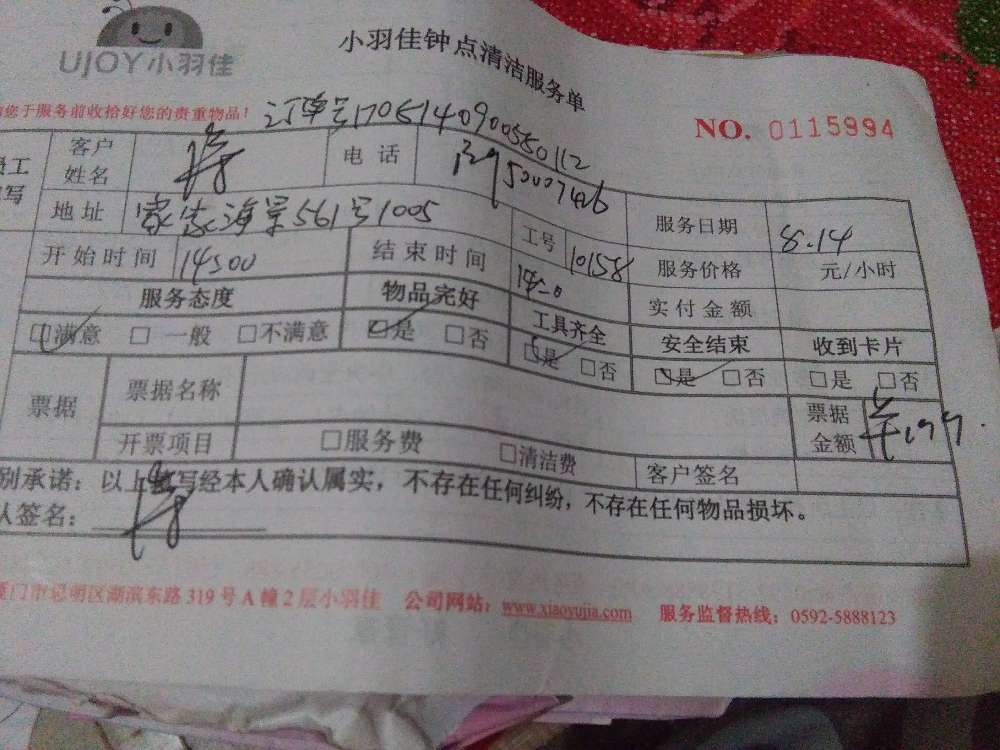 UJOY小羽佳
小羽佳钟点清洁服务单
您于服务前收拾好您的贵重物品！
订单号1705140900550112
NO. 0115994
客户姓名
电话
地址
561号1005
服务日期
8.14
开始时间
14:00
结束时间
工号
10158
服务价格
元/小时
服务态度
物品完好
工具齐全
实付金额
□满意 □一般 □不满意
□是 □否
□是 □否
安全结束
收到卡片
□是 □否
□是 □否
票据
票据名称
票据金额
开票项目
□服务费
□清洁费
客户签名
别承诺：以上填写经本人确认属实，不存在任何纠纷，不存在任何物品损坏。
人签名：
门市思明区湖滨东路 319 号 A 幢 2 层小羽佳 公司网站：www.xiaoyujia.com 服务监督热线：0592-5888123